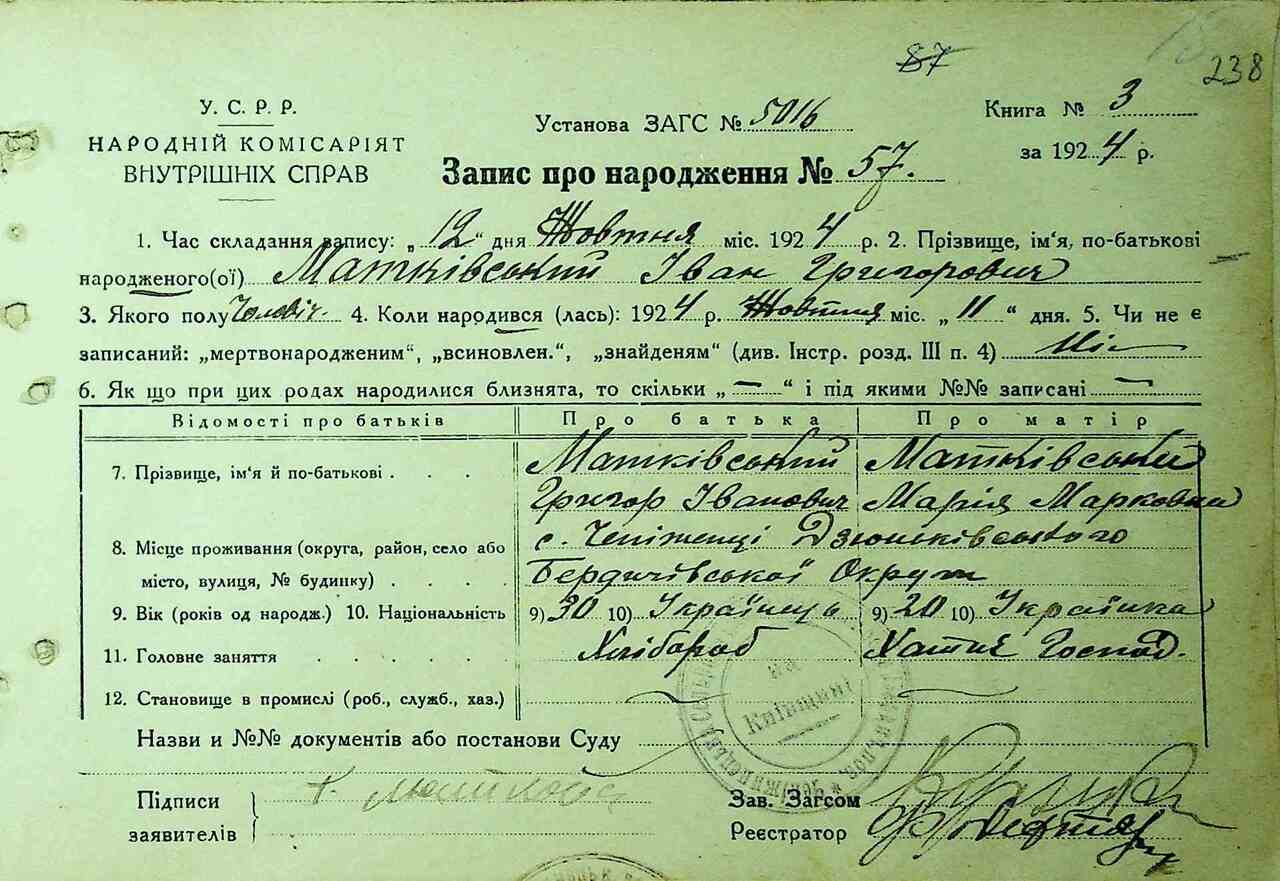 87
238
У. С. Р. Р.
НАРОДНІЙ КОМІСАРІЯТ
ВНУТРІШНІХ СПРАВ
Установа ЗАГС № 5016
Книга № 3
за 1924 р.
Запис про народження № 57.
1. Час складання запису: „12“ дня Жовтня міс. 1924 р. 2. Прізвище, ім'я, по-батькові
народженого(ої) Матківський Іван Григорович
3. Якого полу Чоловіч. 4. Коли народився (лась): 1924 р. Жовтня міс. „11“ дня. 5. Чи не є
записаний: „мертвонародженим“, „всиновлен.“, „знайденям“ (див. Інстр. розд. III п. 4) Ні
6. Як що при цих родах народилися близнята, то скільки „—“ і під якими №№ записані —
Відомості про батьків Про батька Про матір
7. Прізвище, ім'я й по-батькові . . . Матківський Матківськи
Григор Іванович Марія Марковна
8. Місце проживання (округа, район, село або с. Чепіженці Дзюньківського
місто, вулиця, № будинку) . . . . Бердичівської Округи
9. Вік (років од народж.) 10. Національність 9) 30 10) Українець 9) 20 10) Українка
11. Головне заняття . . . . . Хлібороб Хатнє Господ.
12. Становище в промислі (роб., служб., хаз.) — —
Назви и №№ документів або постанови Суду
Підписи
заявителів
Зав. Загсом
Реєстратор
на
Київщині